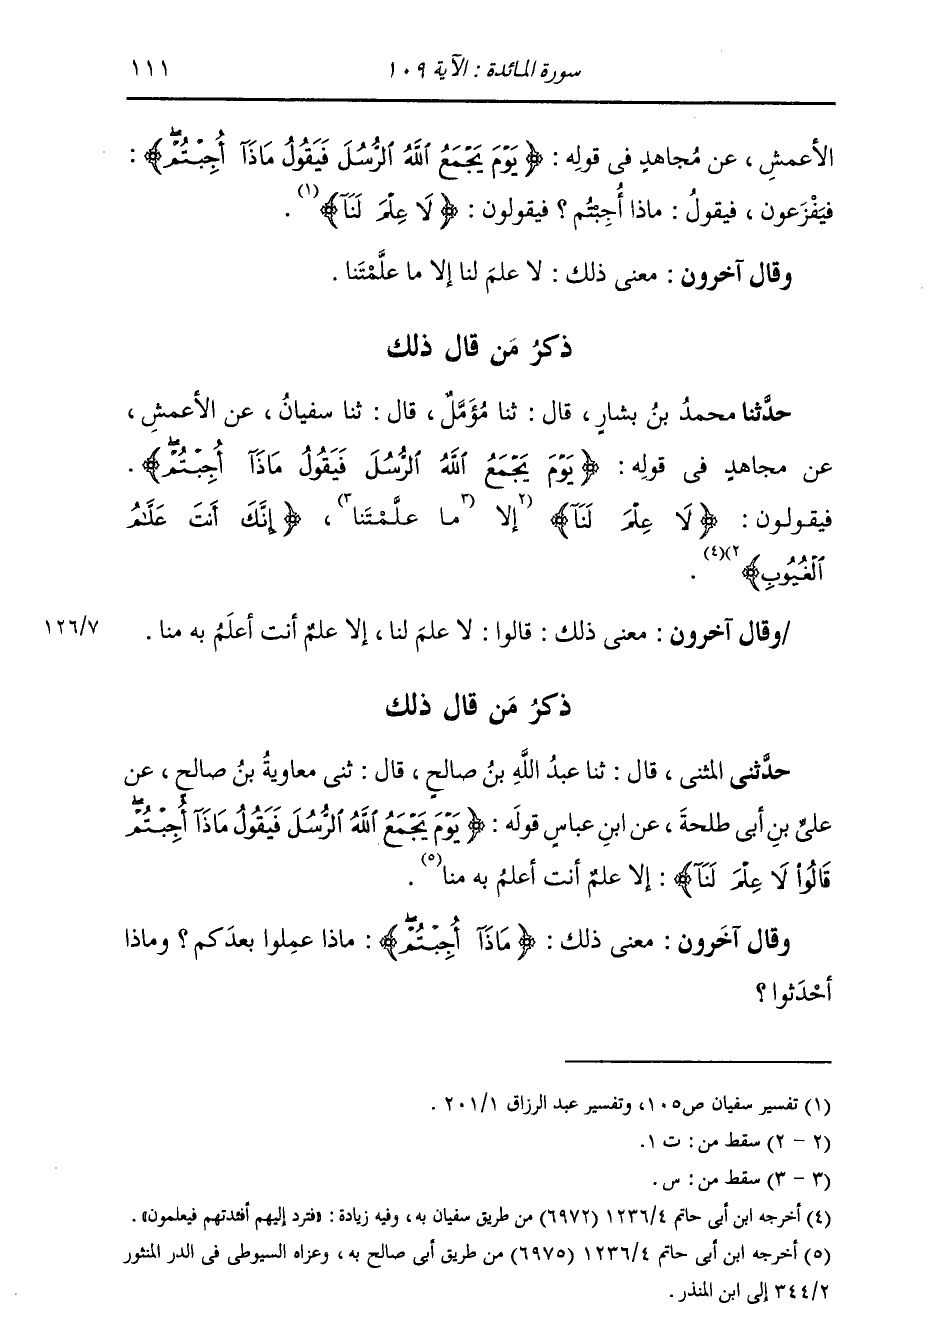 سورة المائدة : الآية ١٠٩
١١١
الأعمشِ ، عن مُجاهدٍ فى قولِه : ﴿ يَوْمَ يَجْمَعُ ٱللَّهُ ٱلرُّسُلَ فَيَقُولُ مَاذَآ أُجِبْتُمْۖ ﴾ :
فيَفْزَعون ، فيقولُ : ماذا أُجِبْتُم ؟ فيقولون : ﴿ لَا عِلْمَ لَنَآ ﴾(١) .
وقال آخرون : معنى ذلك : لا علمَ لنا إلا ما علَّمْتَنا .
ذكرُ مَن قال ذلك
حدَّثنا محمدُ بنُ بشارٍ ، قال : ثنا مُؤَمَّلٌ ، قال : ثنا سفيانُ ، عن الأعمشِ ،
عن مجاهدٍ فى قولِه : ﴿ يَوْمَ يَجْمَعُ ٱللَّهُ ٱلرُّسُلَ فَيَقُولُ مَاذَآ أُجِبْتُمْۖ ﴾ .
فيقولون : ﴿ لَا عِلْمَ لَنَآ ﴾ (٢إلا (٣ما علَّمْتَنا٣) ، ﴿ إِنَّكَ أَنتَ عَلَّٰمُ
ٱلْغُيُوبِ ﴾٢)(٤) .
/وقال آخرون : معنى ذلك : قالوا : لا علمَ لنا ، إلا علمٌ أنت أعلَمُ به منا .
١٢٦/٧
ذكرُ مَن قال ذلك
حدَّثنى المثنى ، قال : ثنا عبدُ اللَّهِ بنُ صالحٍ ، قال : ثنى معاويةُ بنُ صالحٍ ، عن
علىِّ بنِ أبى طلحةَ ، عن ابنِ عباسٍ قولَه : ﴿ يَوْمَ يَجْمَعُ ٱللَّهُ ٱلرُّسُلَ فَيَقُولُ مَاذَآ أُجِبْتُمْۖ
قَالُوا۟ لَا عِلْمَ لَنَآ ﴾ : إلا علمٌ أنت أعلمُ به منا(٥) .
وقال آخَرون : معنى ذلك : ﴿ مَاذَآ أُجِبْتُمْۖ ﴾ : ماذا عمِلوا بعدَكم ؟ وماذا
أحْدَثوا ؟
(١) تفسير سفيان ص١٠٥، وتفسير عبد الرزاق ٢٠١/١ .
(٢ - ٢) سقط من : ت ١.
(٣ - ٣) سقط من : س .
(٤) أخرجه ابن أبى حاتم ١٢٣٦/٤ (٦٩٧٢) من طريق سفيان به ، وفيه زيادة : «فترد إليهم أفئدتهم فيعلمون» .
(٥) أخرجه ابن أبى حاتم ١٢٣٦/٤ (٦٩٧٥) من طريق أبى صالح به ، وعزاه السيوطى فى الدر المنثور
٣٤٤/٢ إلى ابن المنذر .